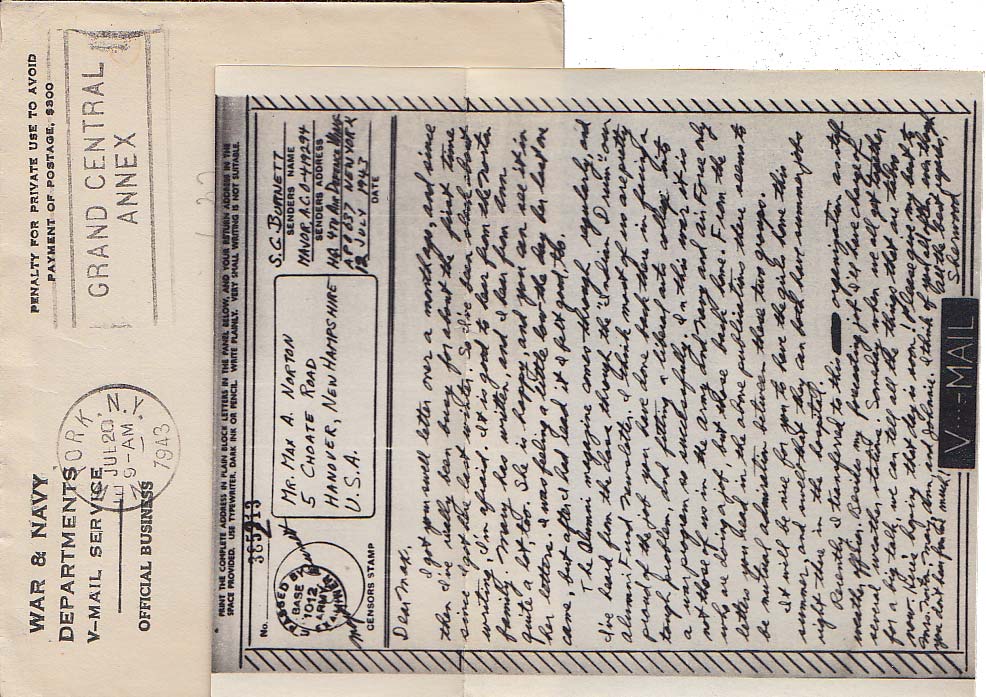 WAR & NAVY
DEPARTMENTS
V-MAIL SERVICE
OFFICIAL BUSINESS
YORK, N.Y.
JUL 20
9-AM
1943
PENALTY FOR PRIVATE USE TO AVOID
PAYMENT OF POSTAGE, $300
GRAND CENTRAL
ANNEX
PRINT THE COMPLETE ADDRESS IN PLAIN BLOCK LETTERS IN THE PANEL BELOW, AND YOUR RETURN ADDRESS IN THE
SPACE PROVIDED. USE TYPEWRITER, DARK INK OR PENCIL. WRITE PLAINLY. VERY SMALL WRITING IS NOT SUITABLE.
No.
PASSED BY
BASE
1012
ARMY
EXAMINER
CENSORS STAMP
MR. MAX A. NORTON
5 CHOATE ROAD
HANOVER, NEW HAMPSHIRE
U.S.A.
S.G. BURNETT
SENDERS NAME
MAJOR A.C. O-419294
SENDERS ADDRESS
HQ 4TH AIR DEFENCE WING
APO 637 NEW YORK
12 JULY 1943
DATE
Dear Max,
I got your swell letter over a month ago, and since
then I've really been busy for about the first time
since I got the last writer. So I've been slack about
writing, I'm afraid. It is good to hear from the Norton
family. Mary has written, and I hear from Lon
quite a lot too. She is happy, and you can see it in
her letters. I was feeling a little low the day her last one
came, but after I had read it I felt good, too.
The Alumni magazine comes through regularly, and
I've heard from the class through the "Indian Drum" our
Alumni Fund newsletter. I think most of us are pretty
proud of the job you have done back there in facing a
tough problem and putting a
a war program so successfully. In this war it is
not those of us in the army and navy and air force only
who are doing a job, but those back home. From the
letters you read in the above publications there seems to
be mutual admiration between these two groups.
It will be nice for you to have the girls home this
summer, and swell that they can both have summer jobs
right there in the hospital.
Recently I transferred to this organization as staff
weather officer. Besides my preceding job I'll have charge of
several weather stations. Someday when we all get together
for a big talk, we can tell all the things that are taboo
now. Here's hoping that day is soon! Please give my best to
Mrs. Norton, Mary, Lon, and Johnnie. I think of you all often though
you don't hear from me much. With the best regards,
Sherwood
V···–MAIL